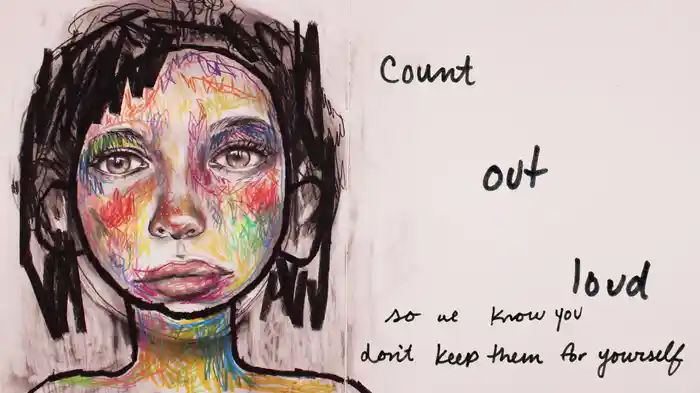 Count
out
loud
so we know you
don't keep them for yourself